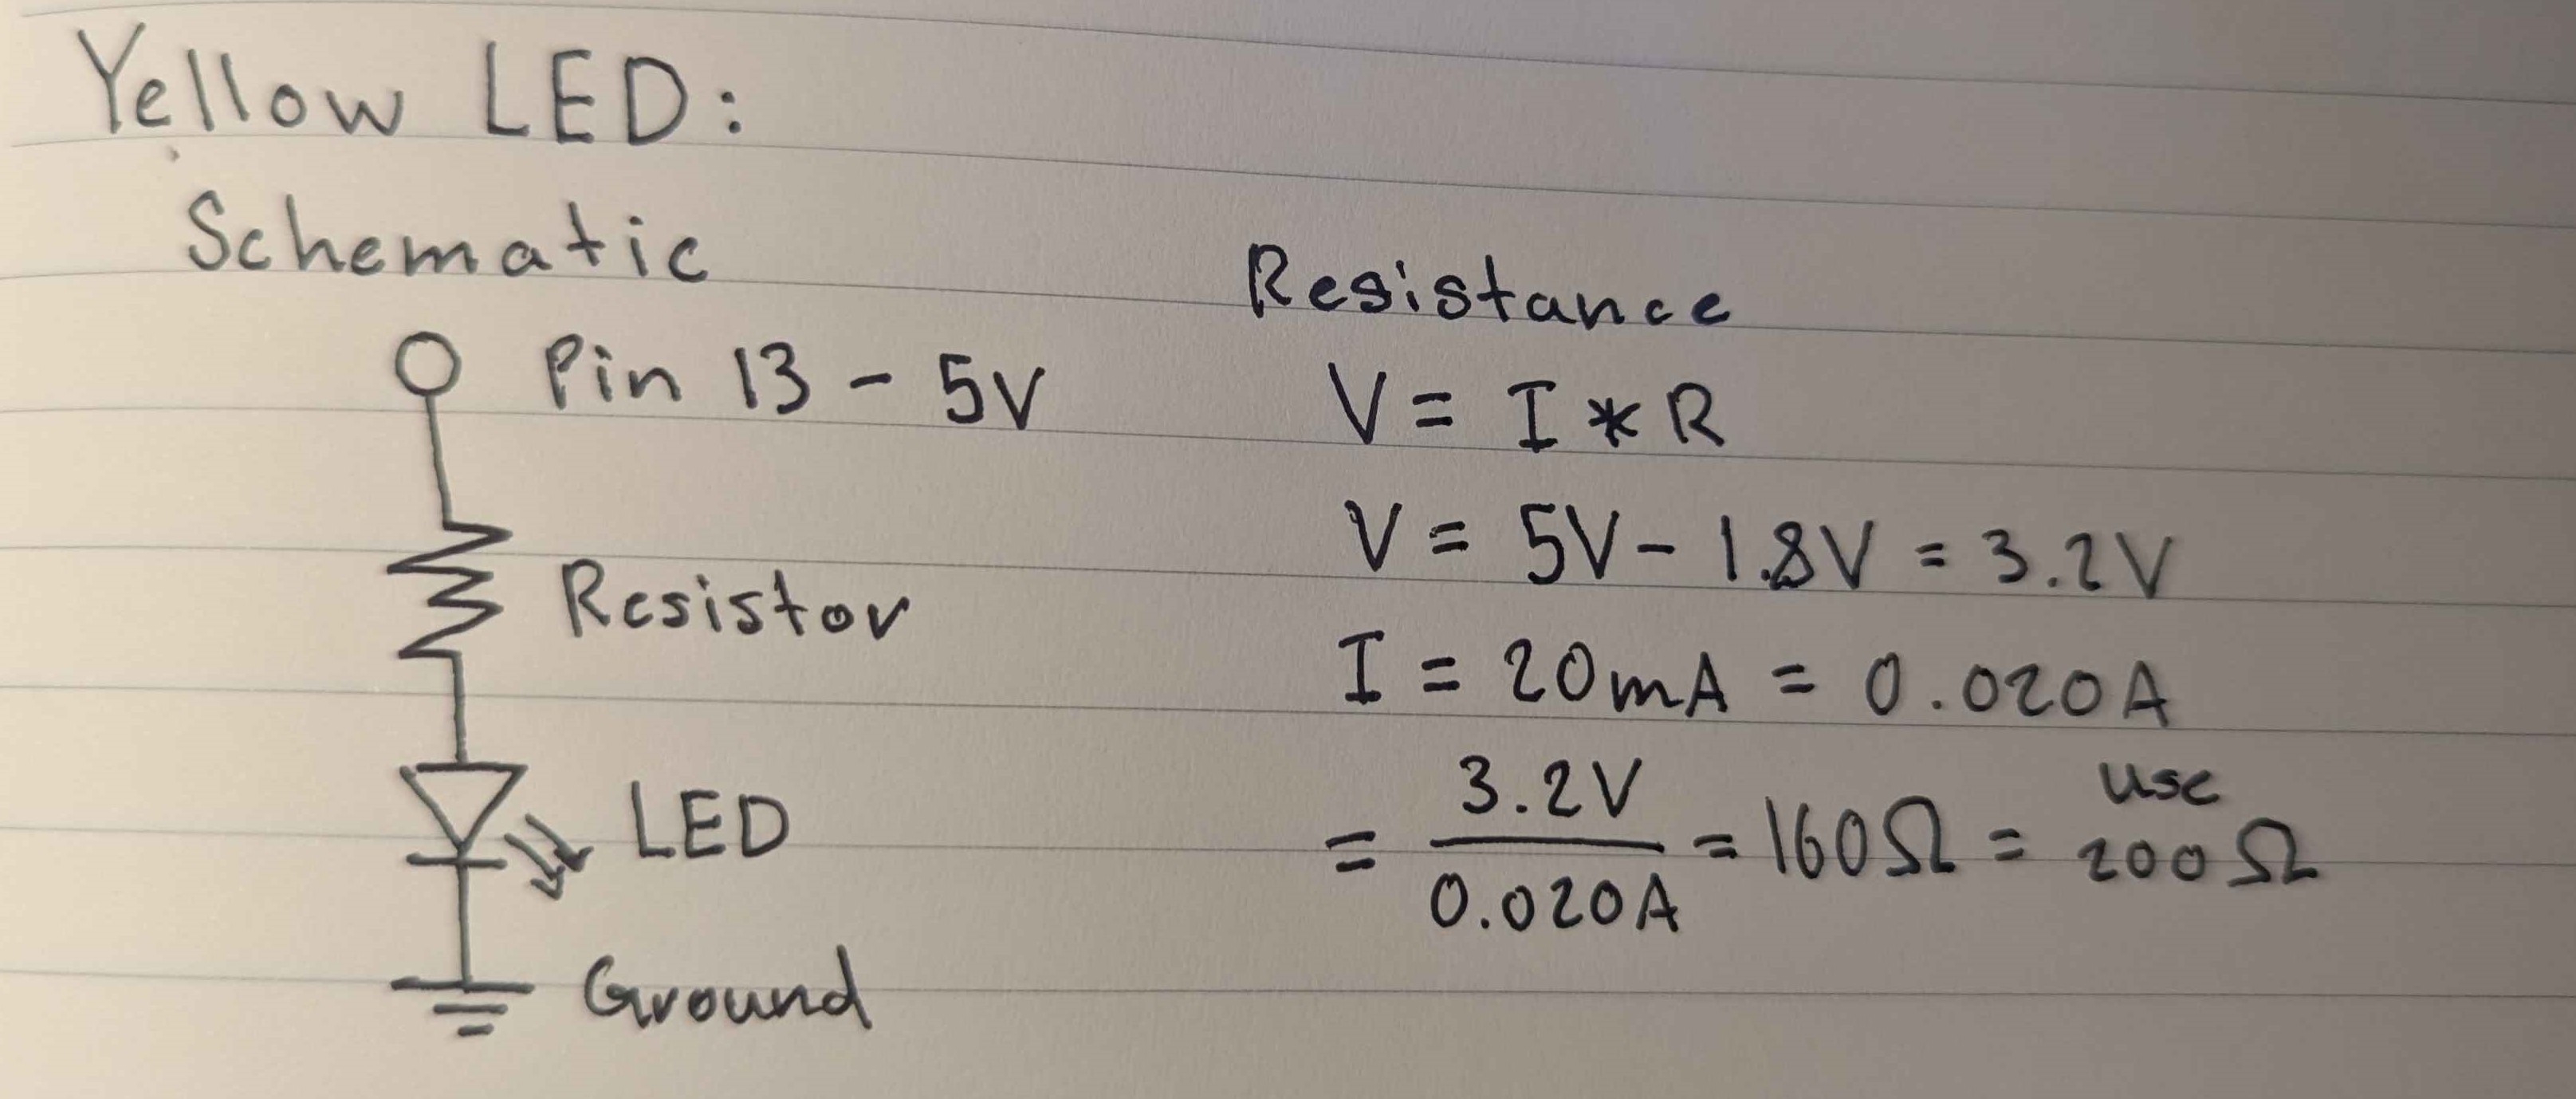 Yellow LED:
Schematic
Pin 13 - 5V
Resistor
LED
Ground
Resistance
V = I * R
V = 5V - 1.8V = 3.2V
I = 20mA = 0.020A
= 3.2V / 0.020A = 160Ω = use 200Ω